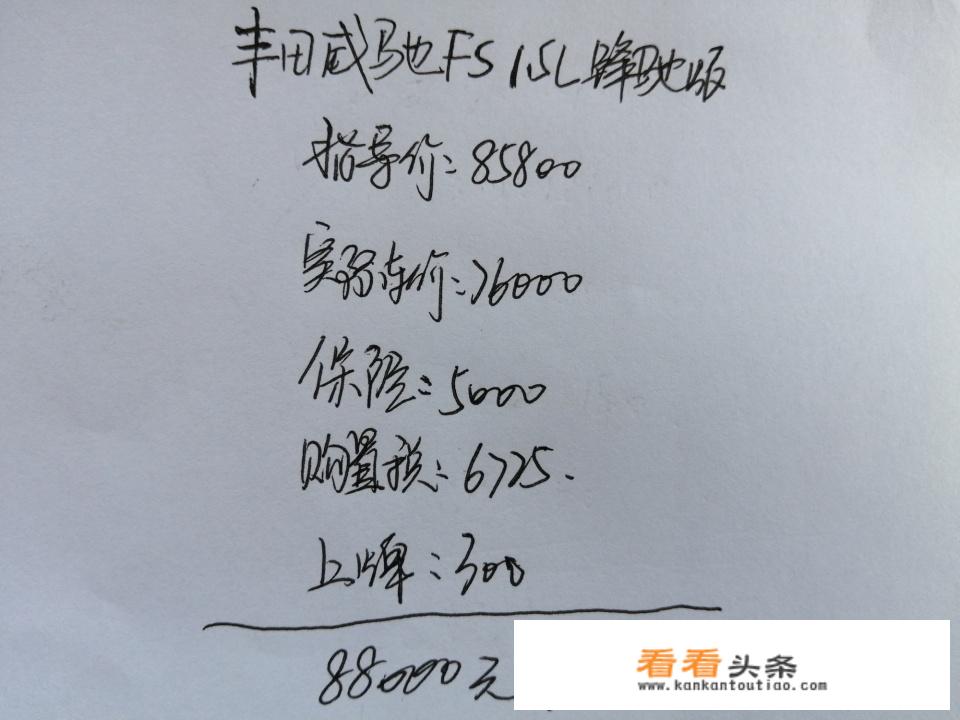 丰田威驰FS 1.5L 锋驰版
指导价:85800
实际车价:76000
保险:5000
购置税:6725.
上牌:300
88000元
看看头条
www.kankantoutiao.com